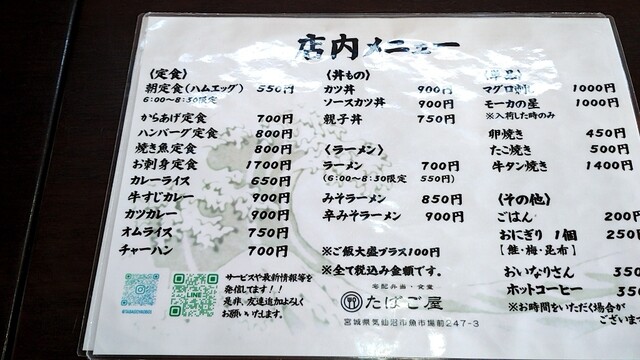 店内メニュー
〈定食〉
朝定食(ハムエッグ) 550円
6:00~8:30限定
からあげ定食 700円
ハンバーグ定食 800円
焼き魚定食 800円
お刺身定食 1700円
カレーライス 650円
牛すじカレー 900円
カツカレー 900円
オムライス 750円
チャーハン 700円
サービスや最新情報等を
発信してます!!
是非、友達追加よろしく
お願いいたします。
LINE
〈丼もの〉
カツ丼 900円
ソースカツ丼 900円
親子丼 750円
〈ラーメン〉
ラーメン 700円
(6:00~8:30限定 550円)
みそラーメン 850円
辛みそラーメン 900円
※ご飯大盛プラス100円
※全て税込み金額です。
宅配弁当・食堂
たばご屋
宮城県気仙沼市魚市場前247-3
〈単品〉
マグロ刺し 1000円
モーカの星 1000円
※入荷した時のみ
卵焼き 450円
たこ焼き 500円
牛タン焼き 1400円
〈その他〉
ごはん 200円
おにぎり 1個 250
【鮭・梅・昆布】
おいなりさん 350
ホットコーヒー 35
※お時間をいただく場合が
ございま